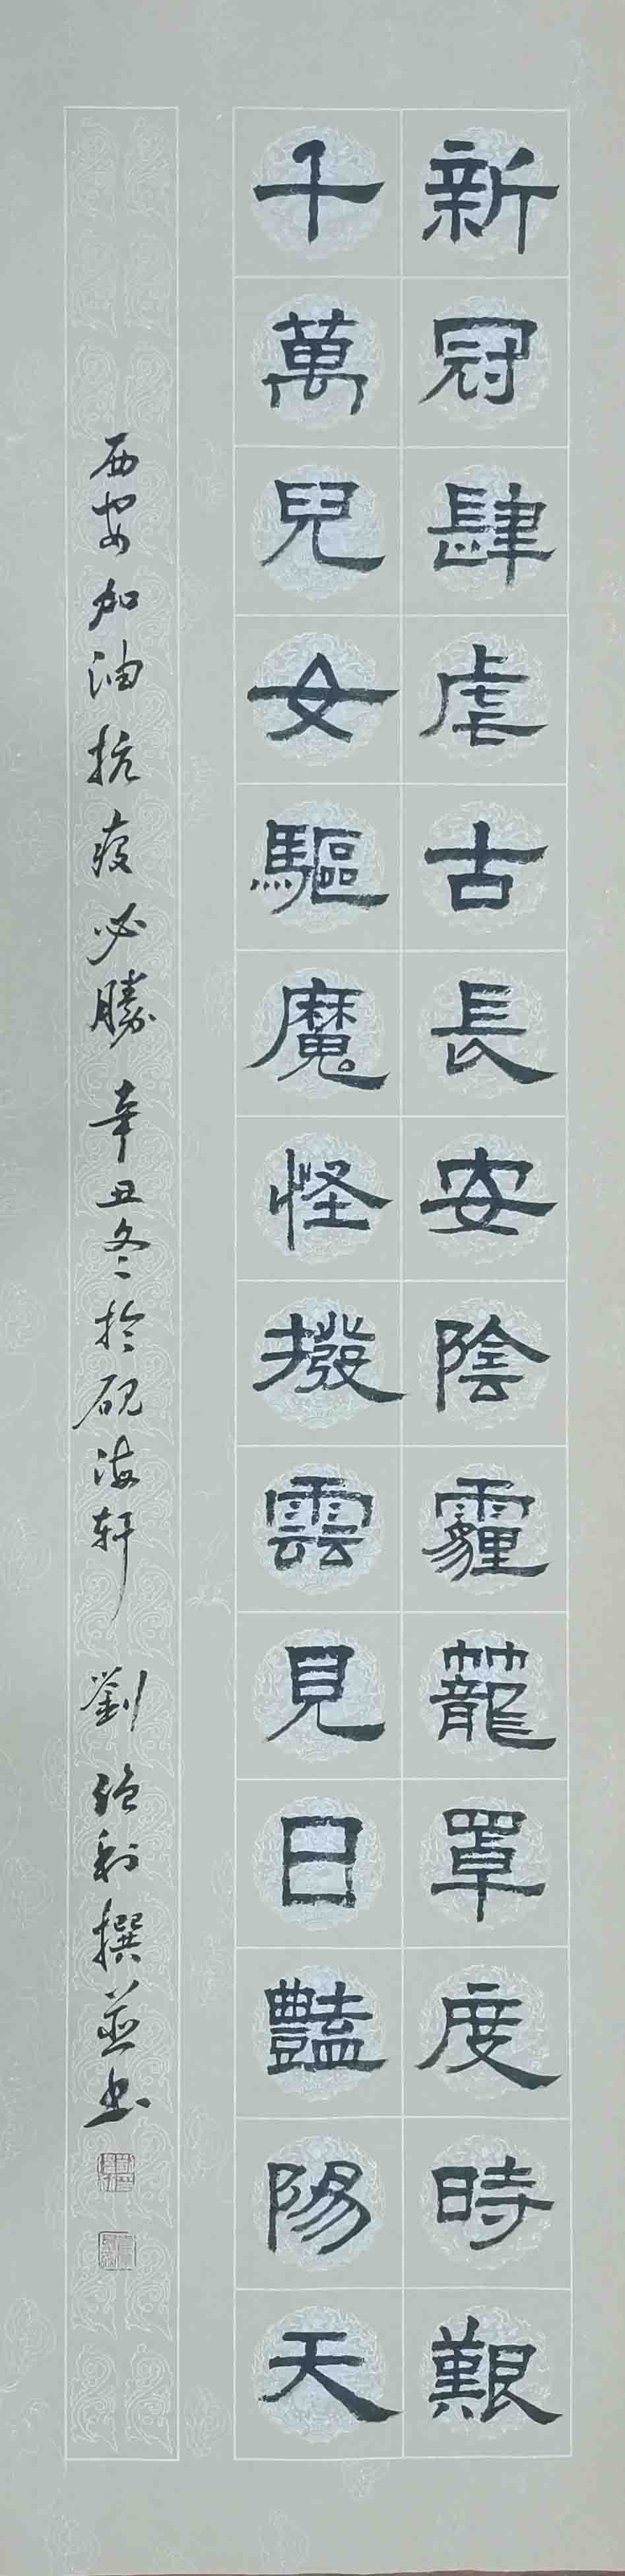 新冠肆虐古長安陰霾籠罩度時艱
千萬兒女驅魔怪撥雲見日豔陽天
西安加油抗疫必勝 辛丑冬於硯海軒 劉利撰並書